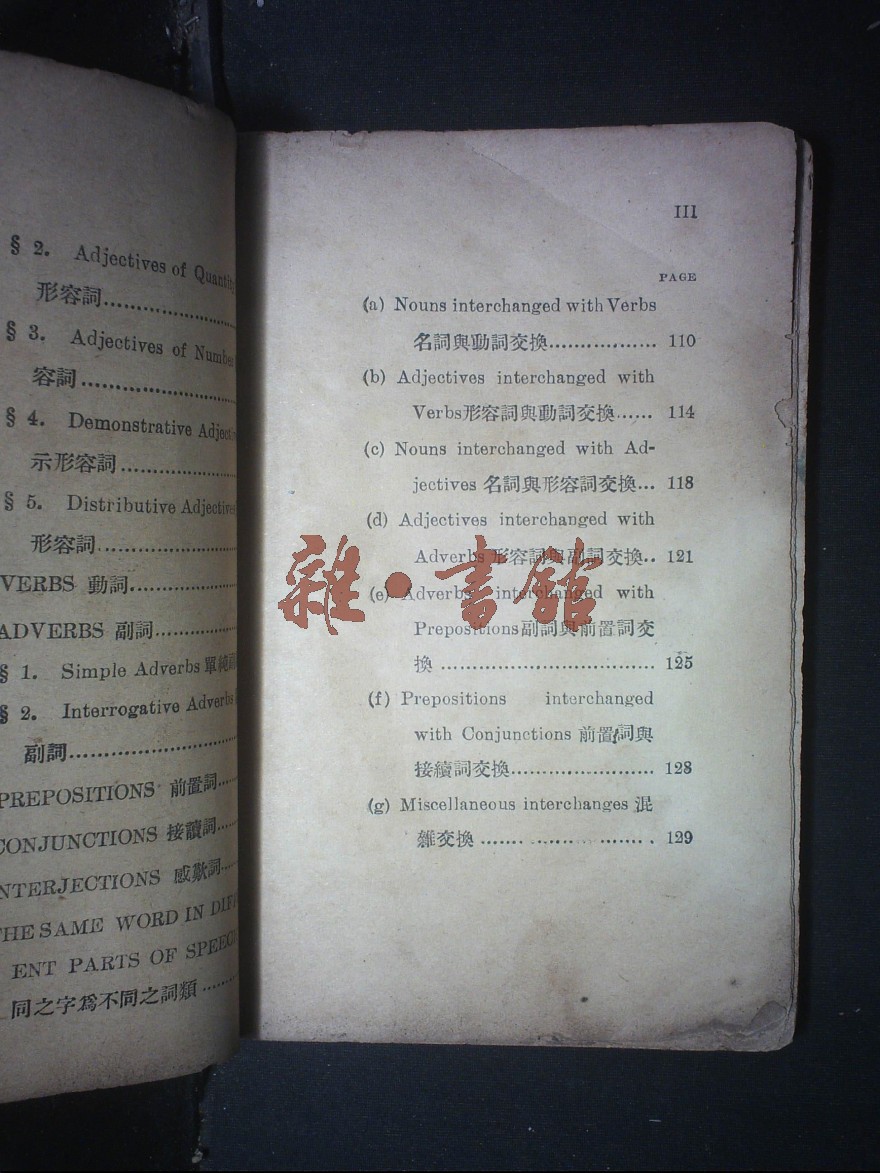 § 2. Adjectives of Quantity
形容詞
§ 3. Adjectives of Number
容詞
§ 4. Demonstrative
示形容詞
§ 5. Distributive Adjectives
形容詞
VERBS 動詞
ADVERBS 副詞
§ 1. Simple Adverbs 單純
§ 2. Interrogative Adverbs
副詞
PREPOSITIONS 前置詞
CONJUNCTIONS 接續詞
INTERJECTIONS 感歎詞
THE SAME WORD IN
ENT PARTS OF SPEECH
同之字爲不同之詞類
III
PAGE
(a) Nouns interchanged with Verbs
名詞與動詞交換................. 110
(b) Adjectives interchanged with
Verbs形容詞與動詞交換...... 114
(c) Nouns interchanged with Ad-
jectives 名詞與形容詞交換... 118
(d) Adjectives interchanged with
Adverbs 形容詞與副詞交換.. 121
(e) Adverbs interchanged with
Prepositions副詞與前置詞交
換 .................................. 125
(f) Prepositions interchanged
with Conjunctions 前置詞與
接續詞交換....................... 128
(g) Miscellaneous interchanges 混
雜交換 ............................ 129
雜·書館